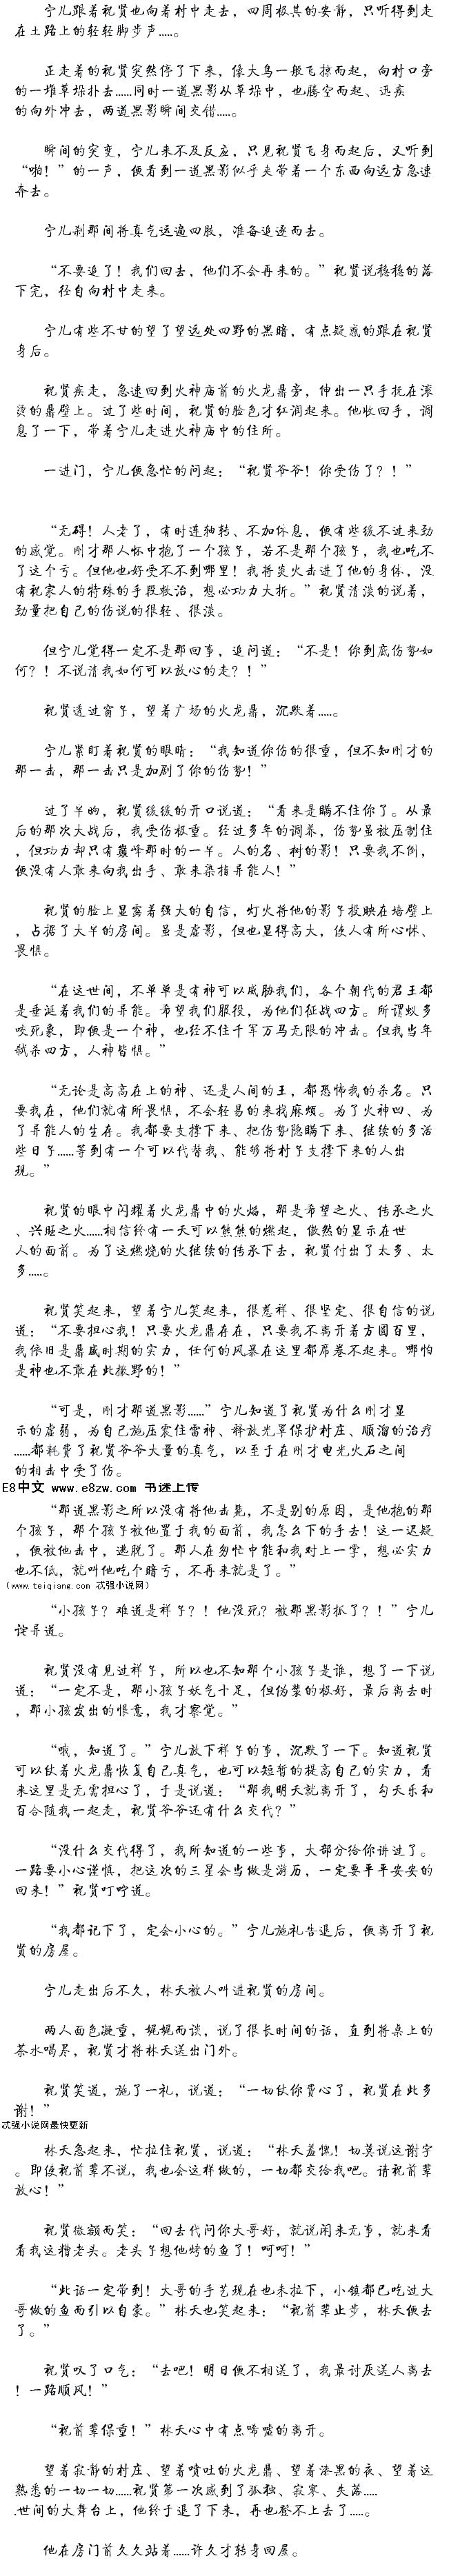 宁儿跟着祝贤也向着村中走去，四周极其的安静，只听得到走
在土路上的轻轻脚步声……。
正走着的祝贤突然停了下来，像大鸟一般飞掠而起，向村口旁
的一堆草垛扑去……同时一道黑影从草垛中，也腾空而起、迅疾
的向外冲去，两道黑影瞬间交错……。
瞬间的突变，宁儿来不及反应，只见祝贤飞身而起后，又听到
“啪！”的一声，便看到一道黑影似乎夹带着一个东西向远方急速
奔去。
宁儿刹那间将真气运遍四肢，准备追逐而去。
“不要追了！我们回去，他们不会再来的。”祝贤说稳稳的落
下完，径自向村中走来。
宁儿有些不甘的望了望远处四野的黑暗，有点疑惑的跟在祝贤
身后。
祝贤疾走，急速回到火神庙前的火龙鼎旁，伸出一只手抚在滚
烫的鼎壁上。过了些时间，祝贤的脸色才红润起来。他收回手，调
息了一下，带着宁儿走进火神庙中的住所。
一进门，宁儿便急忙的问起：“祝贤爷爷！你受伤了？！”
“无碍！人老了，有时连轴转、不加休息，便有些缓不过来劲
的感觉。刚才那人怀中抱了一个孩子，若不是那个孩子，我也吃不
了这个亏。但他也好受不不到哪里！我将炎火击进了他的身体，没
有祝家人的特殊的手段救治，想必功力大折。”祝贤清淡的说着，
劲量把自己的伤说的很轻、很淡。
但宁儿觉得一定不是那回事，追问道：“不是！你到底伤势如
何？！不说清我如何可以放心的走？！”
祝贤透过窗子，望着广场的火龙鼎，沉默着……。
宁儿紧盯着祝贤的眼睛：“我知道你伤的很重，但不知刚才的
那一击，那一击只是加剧了你的伤势！”
过了半晌，祝贤缓缓的开口说道：“看来是瞒不住你了。从最
后的那次大战后，我受伤极重。经过多年的调养，伤势虽被压制住
，但功力却只有巅峰那时的一半。人的名、树的影！只要我不倒，
便没有人敢来向我出手、敢来染指异能人！”
祝贤的脸上显露着强大的自信，灯火将他的影子投映在墙壁上
，占据了大半的房间。虽是虚影，但也显得高大，使人有所心怵、
畏惧。
“在这世间，不单单是有神可以威胁我们，各个朝代的君王都
是垂涎着我们的异能。希望我们服役，为他们征战四方。所谓蚁多
咬死象，即便是一个神，也经不住千军万马无限的冲击。但我当年
弑杀四方，人神皆惧。”
“无论是高高在上的神、还是人间的王，都恐怖我的杀名。只
要我在，他们就有所畏惧，不会轻易的来找麻烦。为了火神凹、为
了异能人的生存。我都要支撑下来、把伤势隐瞒下来、继续的多活
些日子……等到有一个可以代替我、能够将村子支撑下来的人出
现。”
祝贤的眼中闪耀着火龙鼎中的火焰，那是希望之火、传承之火
、兴旺之火……相信终有一天可以熊熊的燃起，傲然的显示在世
人的面前。为了这燃烧的火继续的传承下去，祝贤付出了太多、太
多……。
祝贤笑起来，望着宁儿笑起来，很慈祥、很坚定、很自信的说
道：“不要担心我！只要火龙鼎存在，只要我不离开着方圆百里，
我依旧是鼎盛时期的实力，任何的风暴在这里都席卷不起来。哪怕
是神也不敢在此撒野的！”
“可是，刚才那道黑影……”宁儿知道了祝贤为什么刚才显
示的虚弱，为自己施压震住雷神、释放光罩保护村庄、顺溜的治疗
……都耗费了祝贤爷爷大量的真气，以至于在刚才电光火石之间
的相击中受了伤。
E8中文 www.e8zw.com 书迷上传
“那道黑影之所以没有将他击毙，不是别的原因，是他抱的那
个孩子，那个孩子被他置于我的面前，我怎么下的手去！这一迟疑
，便被他击中，逃脱了。那人在匆忙中能和我对上一掌，想必实力
也不低，就叫他吃个暗亏，不再来就是了。”
（www.teiqiang.com 忒强小说网）
“小孩子？难道是祥子？！他没死？被那黑影抓了？！”宁儿
诧异道。
祝贤没有见过祥子，所以也不知那个小孩子是谁，想了一下说
道：“一定不是，那小孩子妖气十足，但伪装的极好，最后离去时
，那小孩发出的恨意，我才察觉。”
“哦，知道了。”宁儿放下祥子的事，沉默了一下。知道祝贤
可以仗着火龙鼎恢复自己真气，也可以短暂的提高自己的实力，看
来这里是无需担心了，于是说道：“那我明天就离开了，勾天乐和
百合随我一起走，祝贤爷爷还有什么交代？”
“没什么交代得了，我所知道的一些事，大部分给你讲过了。
一路要小心谨慎，把这次的三星会当做是游历，一定要平平安安的
回来！”祝贤叮咛道。
“我都记下了，定会小心的。”宁儿施礼告退后，便离开了祝
贤的房屋。
宁儿走出后不久，林天被人叫进祝贤的房间。
两人面色凝重，娓娓而谈，说了很长时间的话，直到将桌上的
茶水喝尽，祝贤才将林天送出门外。
祝贤笑道，施了一礼，说道：“一切仗你费心了，祝贤在此多
谢！”
忒强小说网最快更新
林天急起来，忙拉住祝贤，说道：“林天羞愧！切莫说这谢字
。即使祝前辈不说，我也会这样做的，一切都交给我吧。请祝前辈
放心！”
祝贤微额而笑：“回去代问你大哥好，就说闲来无事，就来看
看我这糟老头。老头子想他烤的鱼了！呵呵！”
“此话一定带到！大哥的手艺现在也未拉下，小镇都已吃过大
哥做的鱼而引以自豪。”林天也笑起来：“祝前辈止步，林天便去
了。”
祝贤叹了口气：“去吧！明日便不相送了，我最讨厌送人离去
！一路顺风！”
“祝前辈保重！”林天心中有点唏嘘的离开。
望着寂静的村庄、望着喷吐的火龙鼎、望着漆黑的夜、望着这
熟悉的一切一切……祝贤第一次感到了孤独、寂寞、失落……
.世间的大舞台上，他终于退了下来，再也登不上去了……。
他在房门前久久站着……许久才转身回屋。